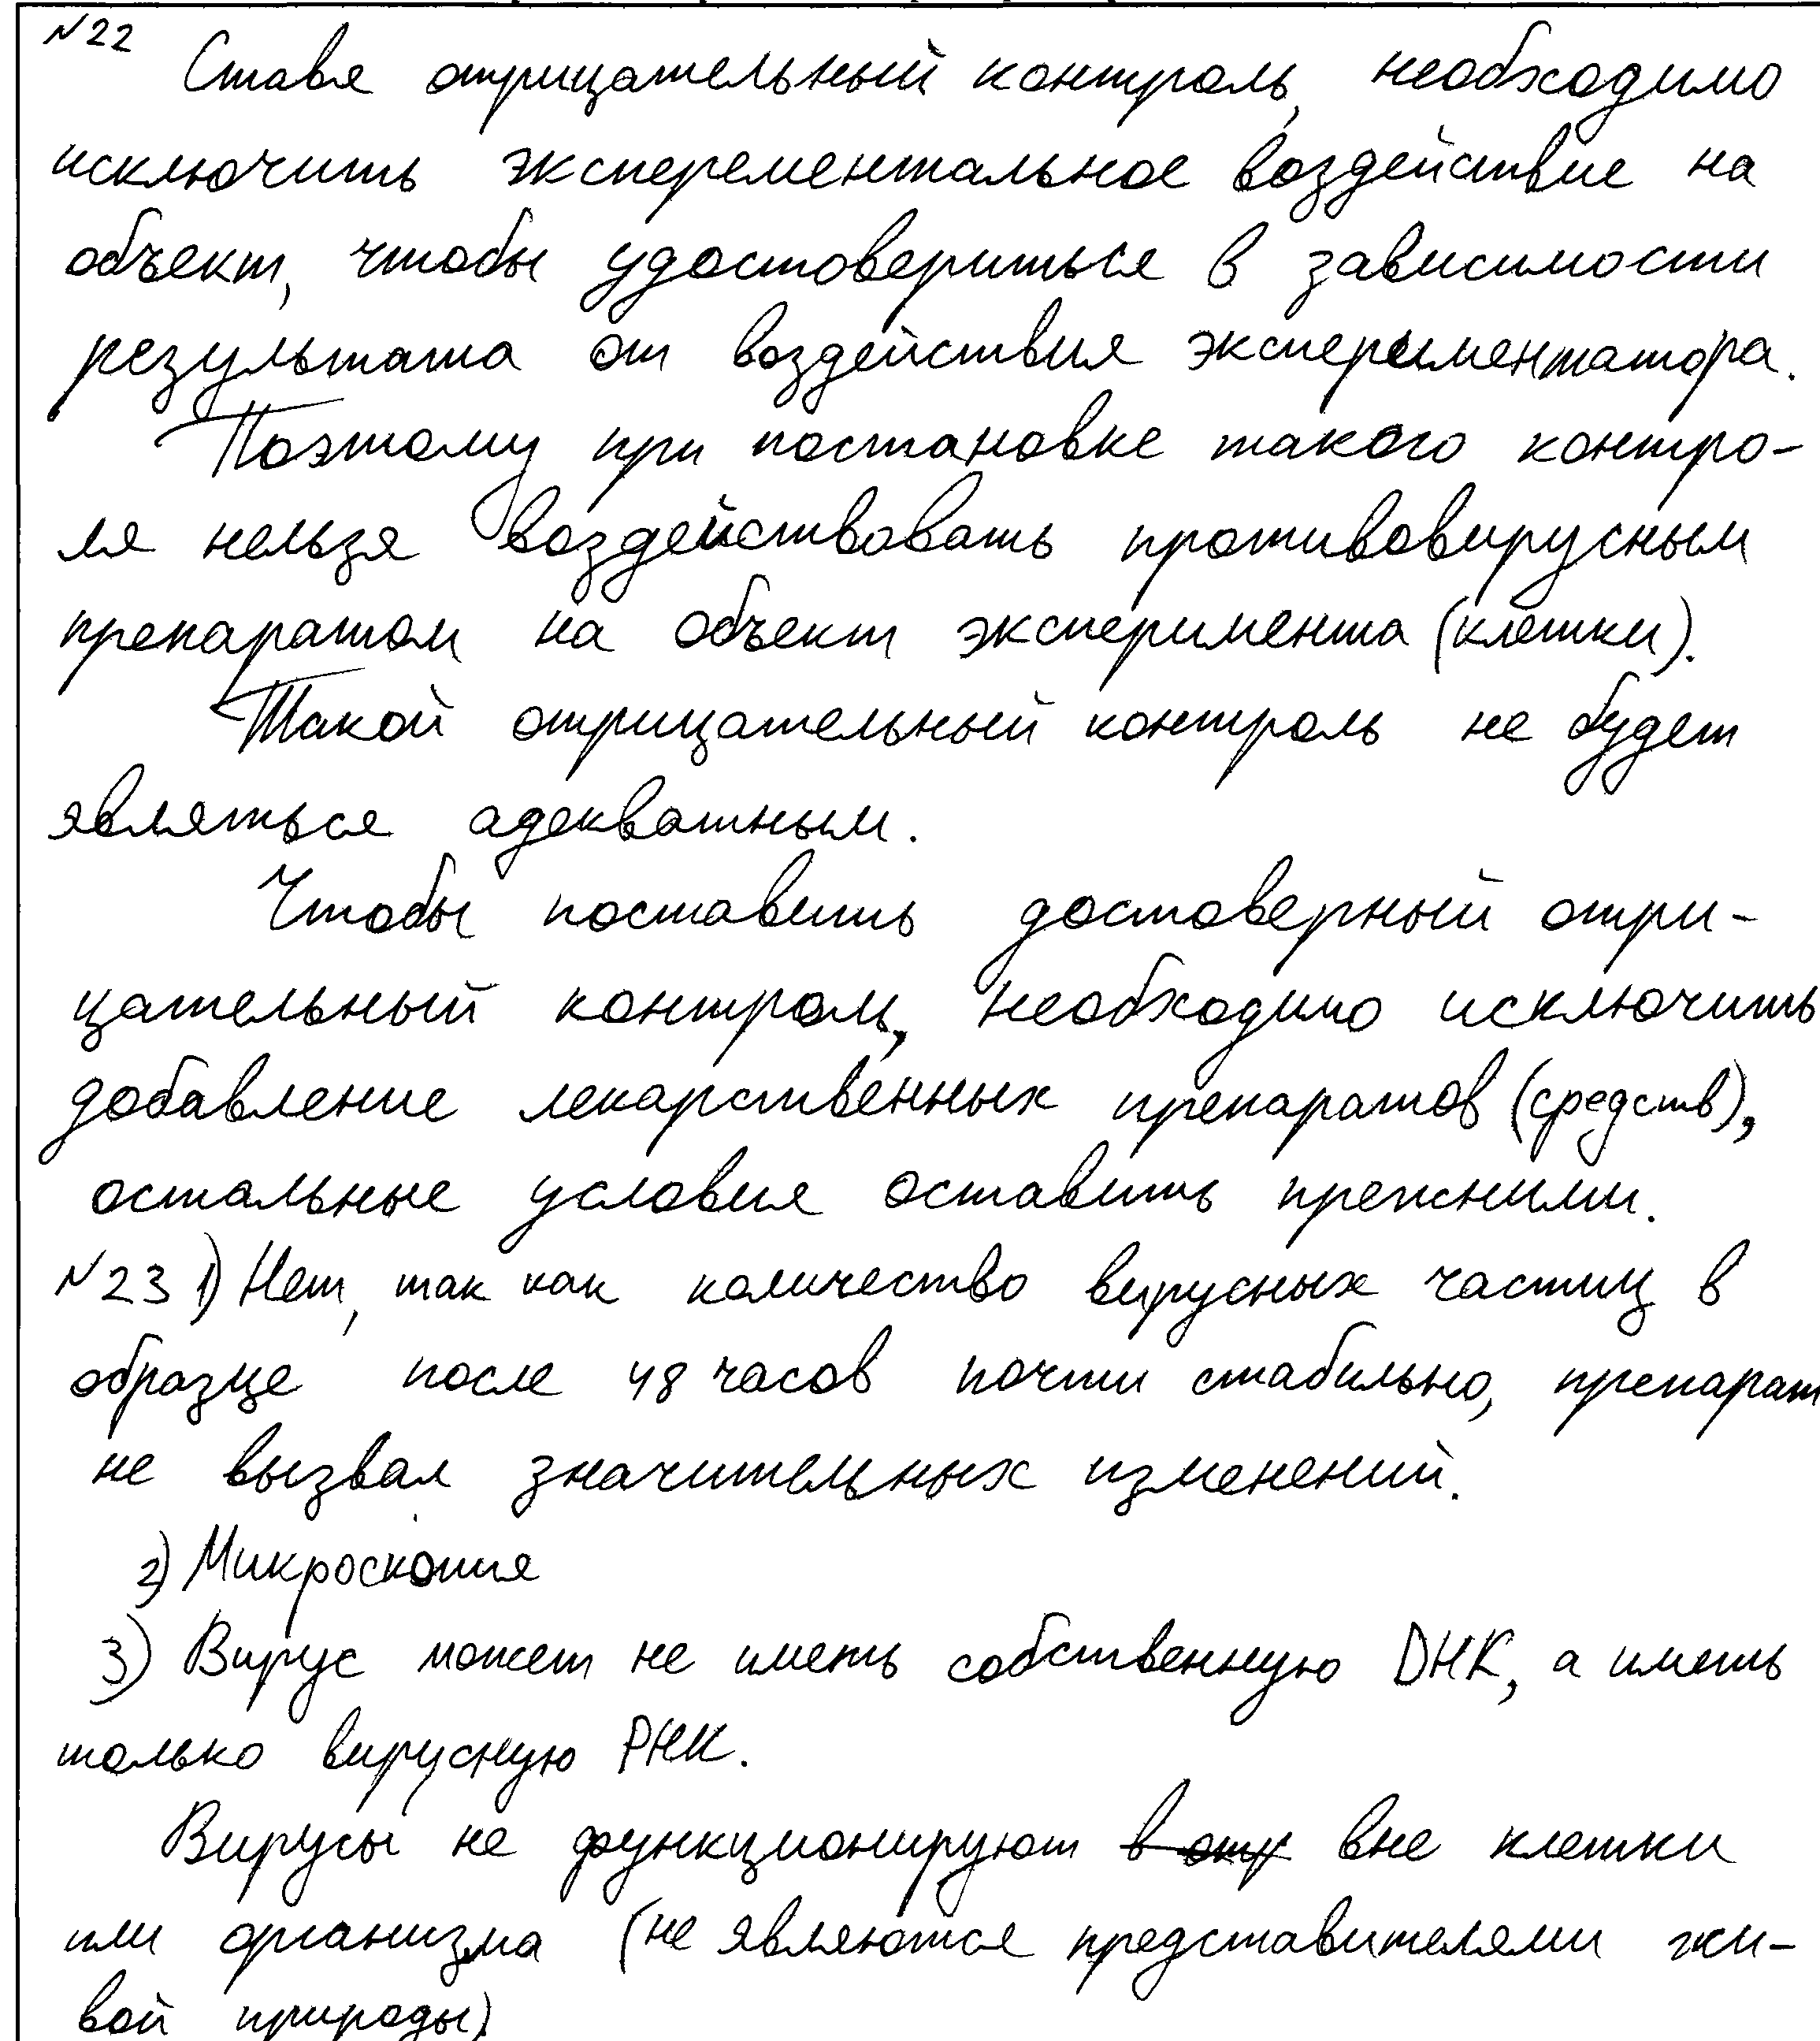 №22
Ставя отрицательный контроль, необходимо
исключить эксперементальное воздействие на
объект, чтобы удостовериться в зависимости
результата от воздействия экспериментатора.
Поэтому при постановке такого контро-
ля нельзя воздействовать противовирусным
препаратом на объект эксперимента (клетки).
Такой отрицательный контроль не будет
являться адекватным.
Чтобы поставить достоверный отри-
цательный контроль, необходимо исключить
добавление лекарственных препаратов (средств),
остальные условия оставить прежними.
№23 1) Нет, так как количество вирусных частиц в
образце после 48 часов почти стабильно, препарат
не вызвал значительных изменений.
2) Микроскопия
3) Вирус может не иметь собственную ДНК, а иметь
только вирусную РНК.
Вирусы не функционируют вне клетки
или организма (не являются представителями жи-
вой природы)